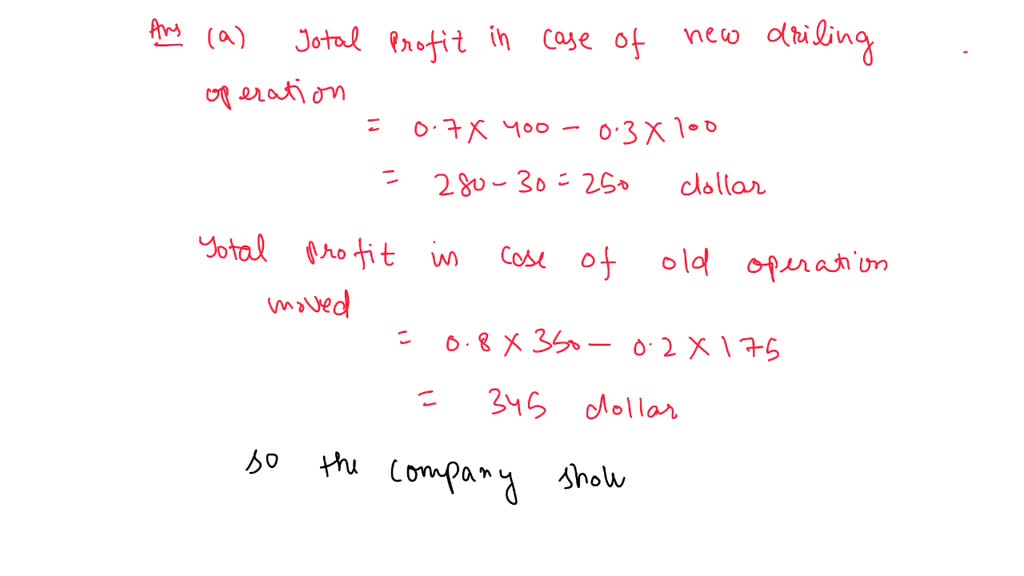 Ans (a) Total Profit in case of new driling
operation
= 0.7 X 400 - 0.3 X 100
= 280 - 30 = 250 dollar
Total profit in case of old operation
moved
= 0.8 X 350 - 0.2 X 175
= 345 dollar
so the company shou